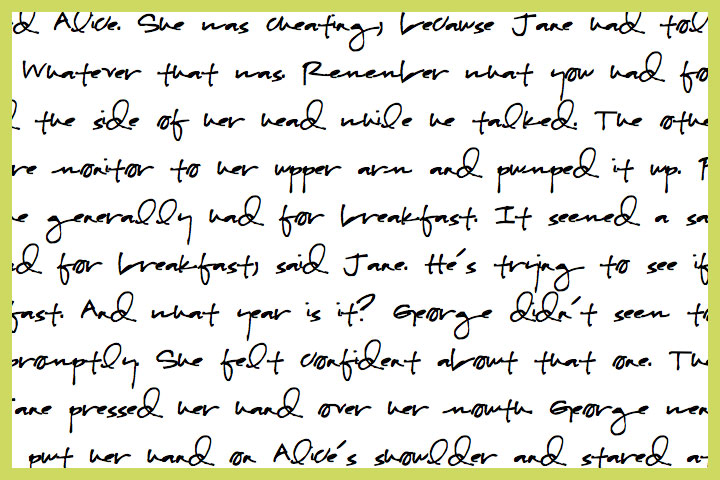 d Alice. She was cheating, because Jane had tol
Whatever that was. Remember what you had fo
the side of her head while he talked. The othe
re monitor to her upper arm and pumped it up.
e generally had for breakfast. It seemed a sa
ed for breakfast, said Jane. He's trying to see if
fast. And what year is it? George didn't seem to
promptly. She felt confident about that one. Th
Jane pressed her hand over her mouth. George wen
put her hand on Alice's shoulder and stared at